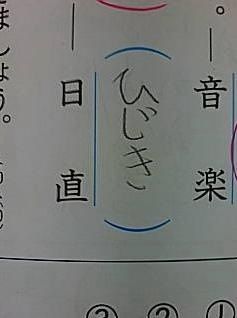 。―音楽
(ひじき)
―日直
ましょう。